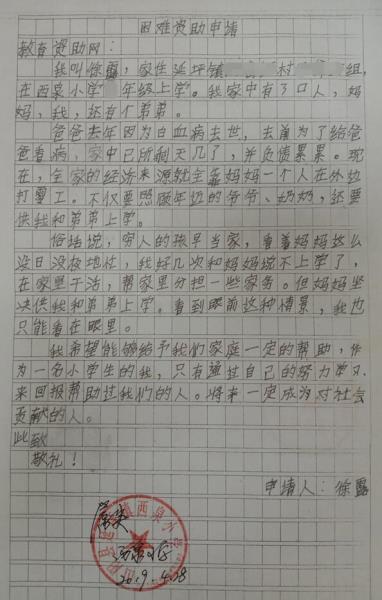 困难资助申请
教育资助网:
我叫徐露,家住延坪镇村组,
在西泉小学年级上学。我家中有了口人,妈
妈,我,还有个弟弟。
爸爸去年因为白血病去世,去前为了给爸
爸看病,家中已所剩无几了,并负债累累。现
在,全家的经济来源就全靠妈妈一个人在外边
打零工。不仅要照顾年迈的爷爷、奶奶,还要
供我和弟弟上学。
俗话说,穷人的孩早当家,看着妈妈这么
没日没夜地忙,我好几次和妈妈说不上学了,
在家里干活,帮家里分担一些家务。但妈妈坚
决供我和弟弟上学。看到眼前这种情景,我也
只能看在眼里。
我希望能够给予我们家庭一定的帮助,作
为一名小学生的我,只有通过自己的努力学习
来回报帮助过我们的人。将来一定成为对社会
贡献的人。
此致
敬礼!
申请人:徐露
镇西泉小学
属实
2019.4.28